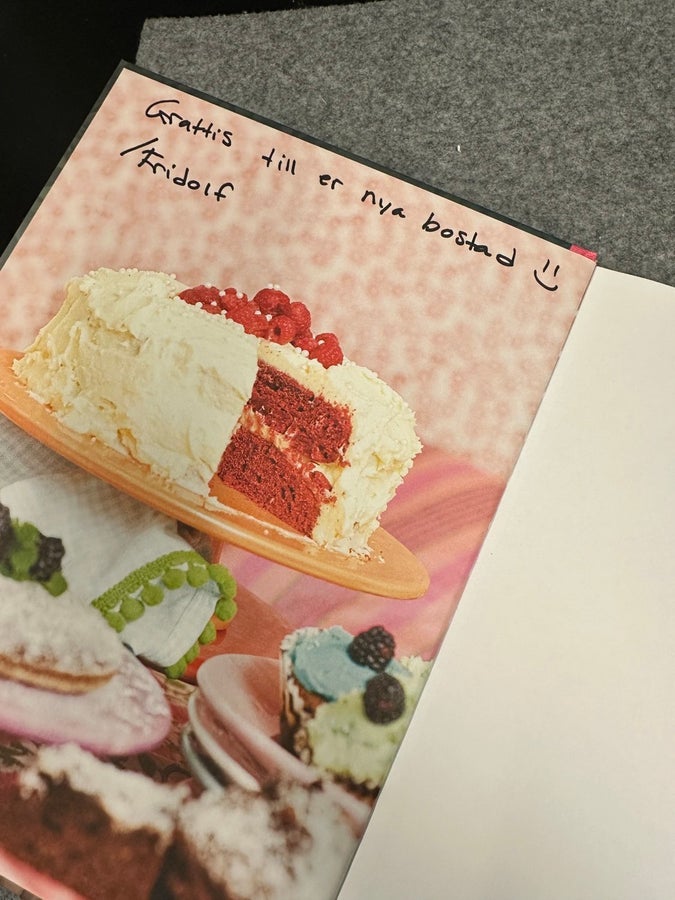 Grattis till er nya bostad :)
/Fridolf